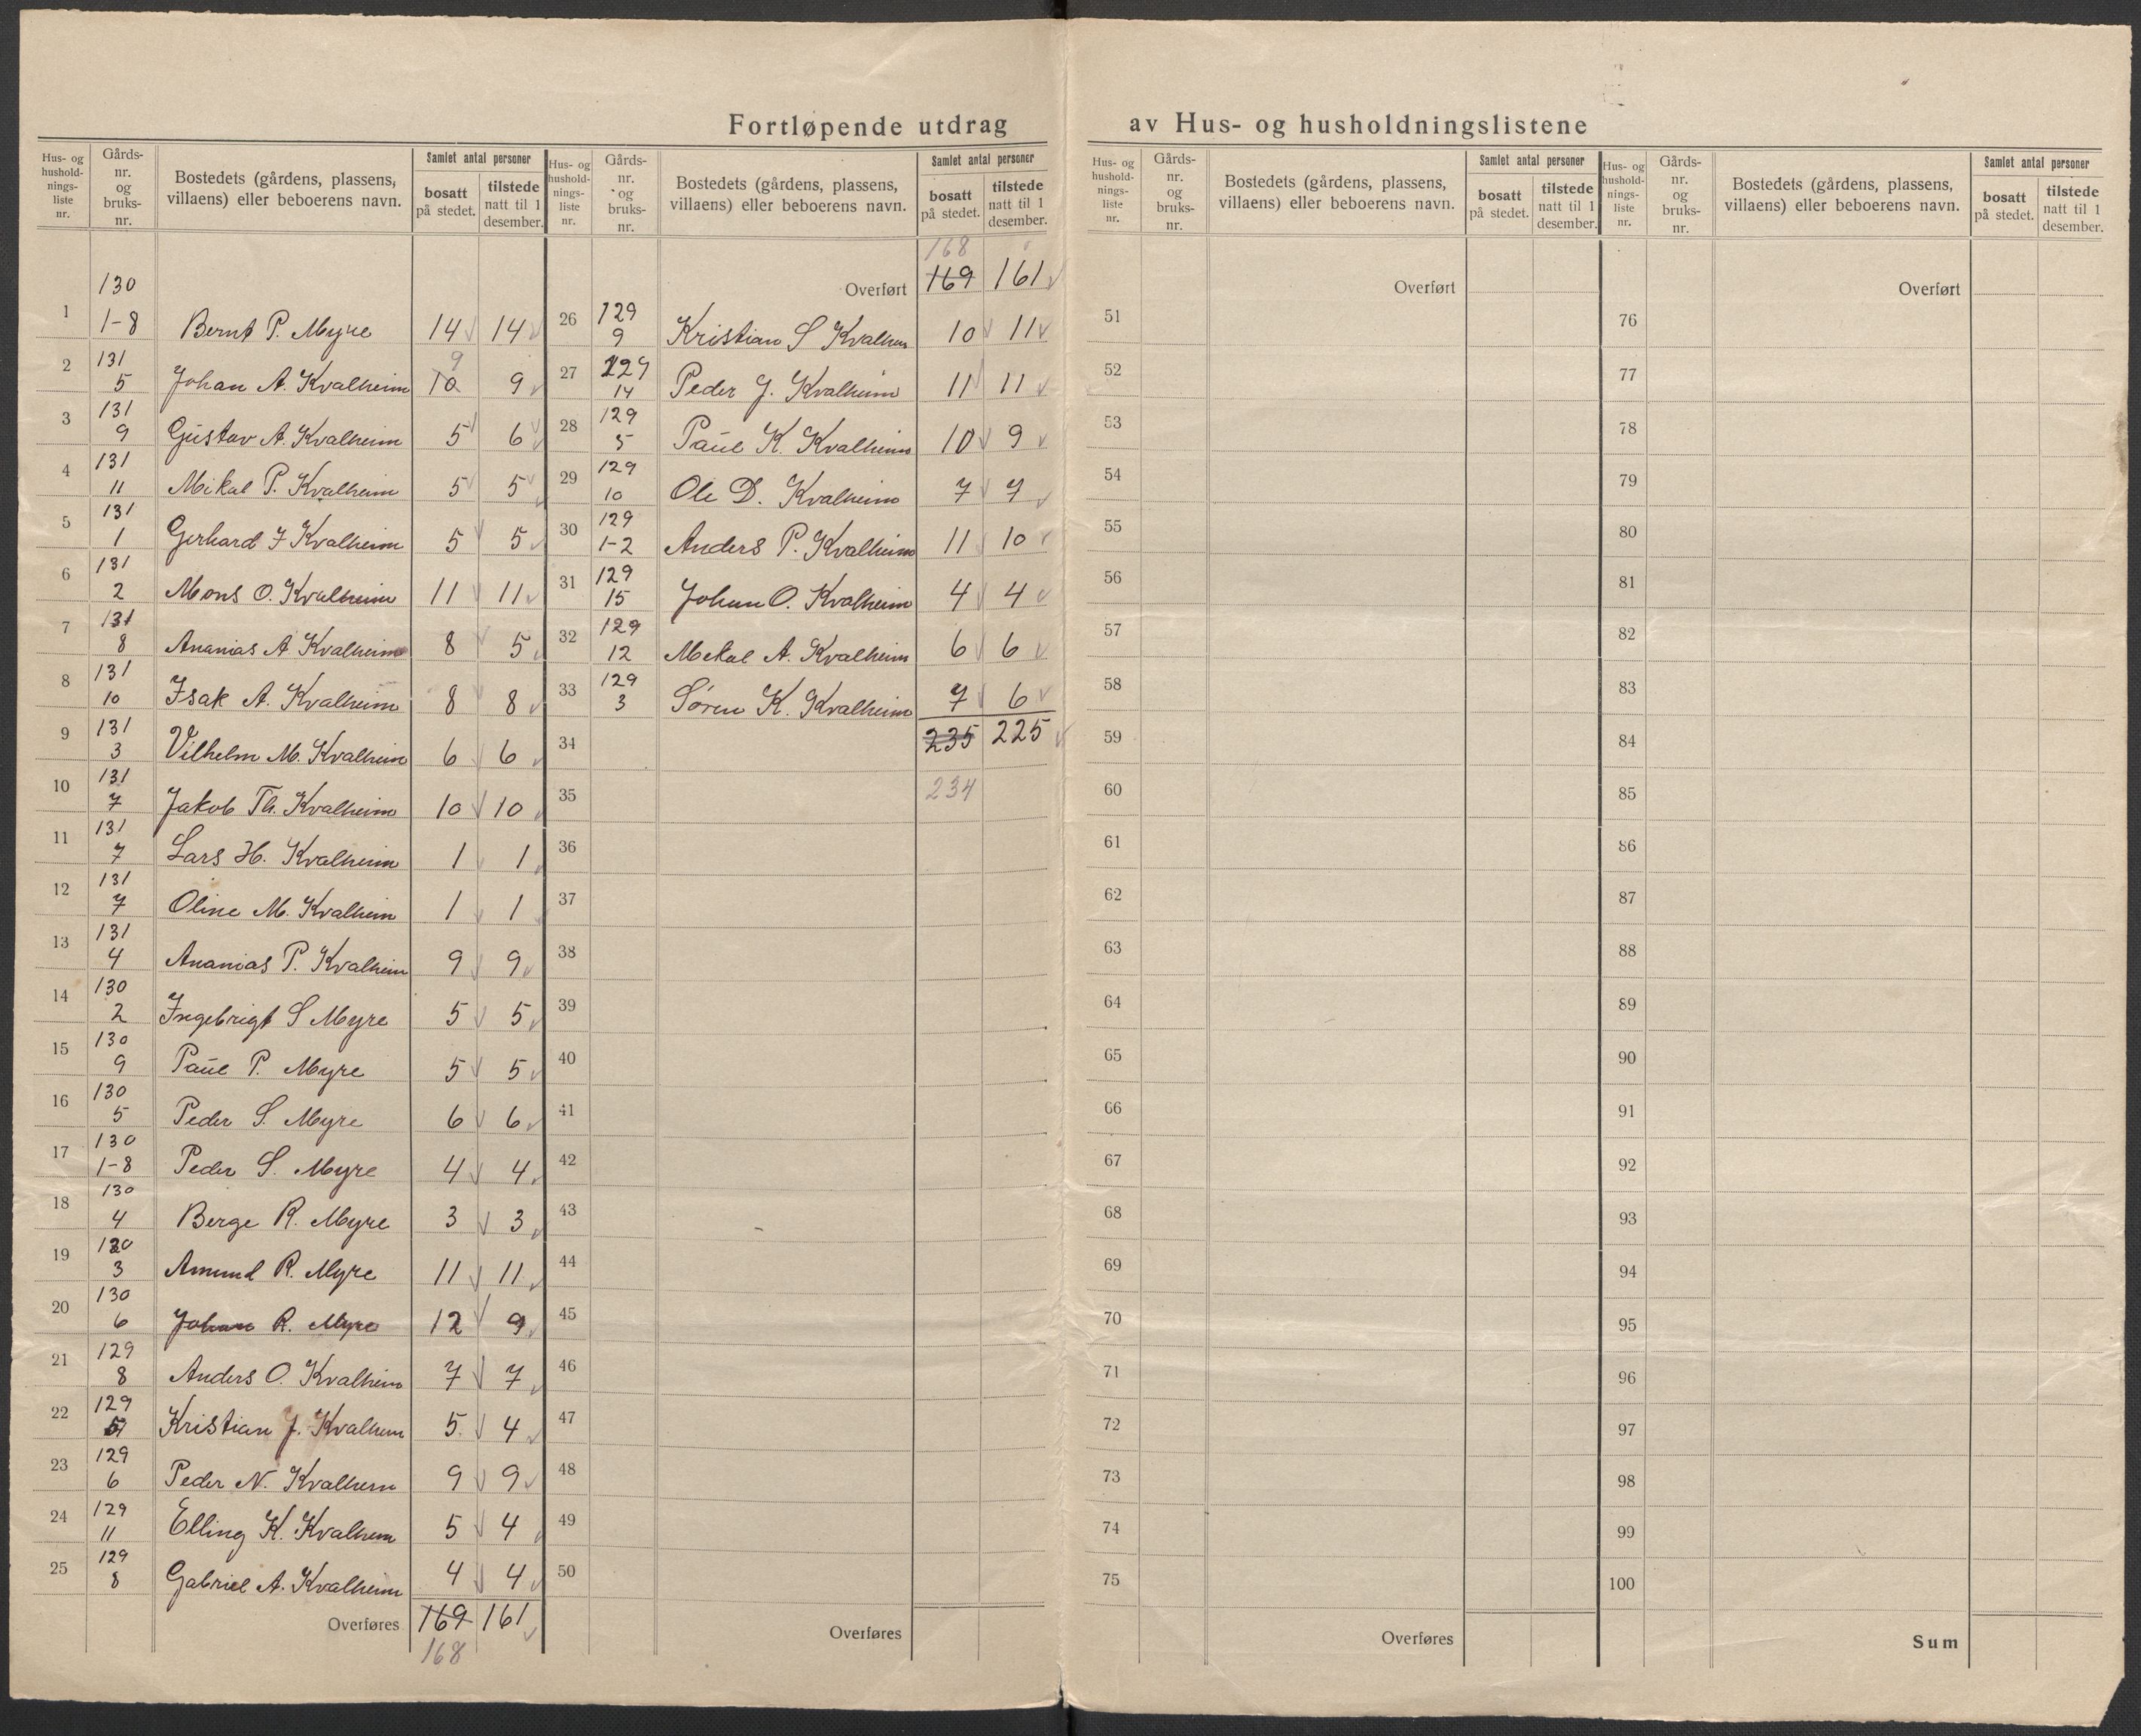 Fortløpende utdrag av Hus- og husholdningslistene
Hus- og husholdningsliste nr. | Gårds-nr. og bruks-nr. | Bostedets (gårdens, plassens, villaens) eller beboerens navn. | Samlet antal personer bosatt på stedet. | tilstede natt til 1 desember.
1 | 130 1-8 | Bernt P. Myre | 14 | 14
2 | 131 5 | Johan A. Kvalheim | 10 9 | 9
3 | 131 9 | Gustav A. Kvalheim | 5 | 6
4 | 131 11 | Mikal P. Kvalheim | 5 | 5
5 | 131 1 | Gerhard J Kvalheim | 5 | 5
6 | 131 2 | Mons O. Kvalheim | 11 | 11
7 | 131 8 | Ananias A Kvalheim | 8 | 5
8 | 131 10 | Isak A. Kvalheim | 8 | 8
9 | 131 3 | Vilhelm M. Kvalheim | 6 | 6
10 | 131 7 | Jakob Th. Kvalheim | 10 | 10
11 | 131 7 | Lars H. Kvalheim | 1 | 1
12 | 131 7 | Oline M. Kvalheim | 1 | 1
13 | 131 4 | Ananias P. Kvalheim | 9 | 9
14 | 130 2 | Ingebrigt S Myre | 5 | 5
15 | 130 9 | Paul P. Myre | 5 | 5
16 | 130 5 | Peder S. Myre | 6 | 6
17 | 130 1-8 | Peder S. Myre | 4 | 4
18 | 130 4 | Berge R. Myre | 3 | 3
19 | 130 3 | Amund R. Myre | 11 | 11
20 | 130 6 | Johan R. Myre | 12 | 9
21 | 129 8 | Anders O. Kvalheim | 7 | 7
22 | 129 | Kristian J. Kvalheim | 5 | 4
23 | 129 6 | Peder N. Kvalheim | 9 | 9
24 | 129 11 | Elling K. Kvalheim | 5 | 4
25 | 129 8 | Gabriel A. Kvalheim | 4 | 4
Overføres 169 161
168
Hus- og husholdningsliste nr. | Gårds-nr. og bruks-nr. | Bostedets (gårdens, plassens, villaens) eller beboerens navn. | Samlet antal personer bosatt på stedet. | tilstede natt til 1 desember.
168
Overført 169 161
26 | 129 9 | Kristian S Kvalheim | 10 | 11
27 | 129 14 | Peder J. Kvalheim | 11 | 11
28 | 129 5 | Paul K. Kvalheim | 10 | 9
29 | 129 10 | Ole D. Kvalheim | 7 | 7
30 | 129 1-2 | Anders P. Kvalheim | 11 | 10
31 | 129 15 | Johan O. Kvalheim | 4 | 4
32 | 129 12 | Mekal A. Kvalheim | 6 | 6
33 | 129 3 | Søren K. Kvalheim | 7 | 6
34 | 235 | 225
35 | 234
36
37
38
39
40
41
42
43
44
45
46
47
48
49
50
Overføres
Hus- og husholdningsliste nr. | Gårds-nr. og bruks-nr. | Bostedets (gårdens, plassens, villaens) eller beboerens navn. | Samlet antal personer bosatt på stedet. | tilstede natt til 1 desember.
Overført
51
52
53
54
55
56
57
58
59
60
61
62
63
64
65
66
67
68
69
70
71
72
73
74
75
Overføres
Hus- og husholdningsliste nr. | Gårds-nr. og bruks-nr. | Bostedets (gårdens, plassens, villaens) eller beboerens navn. | Samlet antal personer bosatt på stedet. | tilstede natt til 1 desember.
Overført
76
77
78
79
80
81
82
83
84
85
86
87
88
89
90
91
92
93
94
95
96
97
98
99
100
Sum